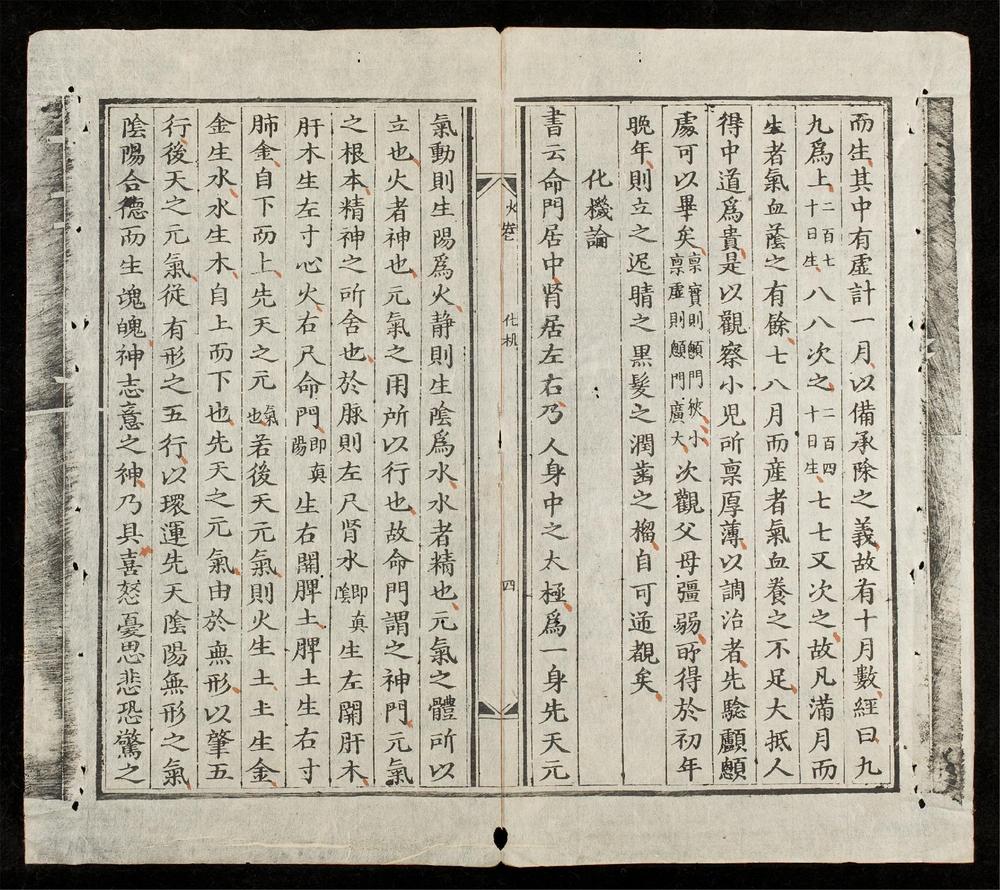 而生其中有虛計一月以備承除之義故有十月數經曰九
九爲上二百七十日生八八次之二百四十日生七七又次之故凡滿月而
生者氣血蔭之有餘七八月而產者氣血養之不足大抵人
得中道爲貴是以觀察小兒所禀厚薄以調治者先騐顱顖
處可以畢矣禀實則顖門狹小禀虛則顖門廣大次觀父母彊弱所得於初年
晚年則立之迟睛之黑髮之潤齒之榴自可通覩矣
化機論
書云命門居中肾居左右乃人身中之太極爲一身先天元
火卷 化机 四
氣動則生陽爲火静則生陰爲水水者精也元氣之體所以
立也火者神也元氣之用所以行也故命門謂之神門元氣
之根本精神之所舍也於脉則左尺肾水即真陰生左關肝木
肝木生左寸心火右尺命門即真陽生右關脾土脾土生右寸
肺金自下而上先天之元氣也若後天元氣則火生土土生金
金生水水生木自上而下也先天之元氣由於無形以肇五
行後天之元氣從有形之五行以環運先天陰陽無形之氣
陰陽合德而生魂魄神志意之神乃具喜怒憂思悲恐驚之